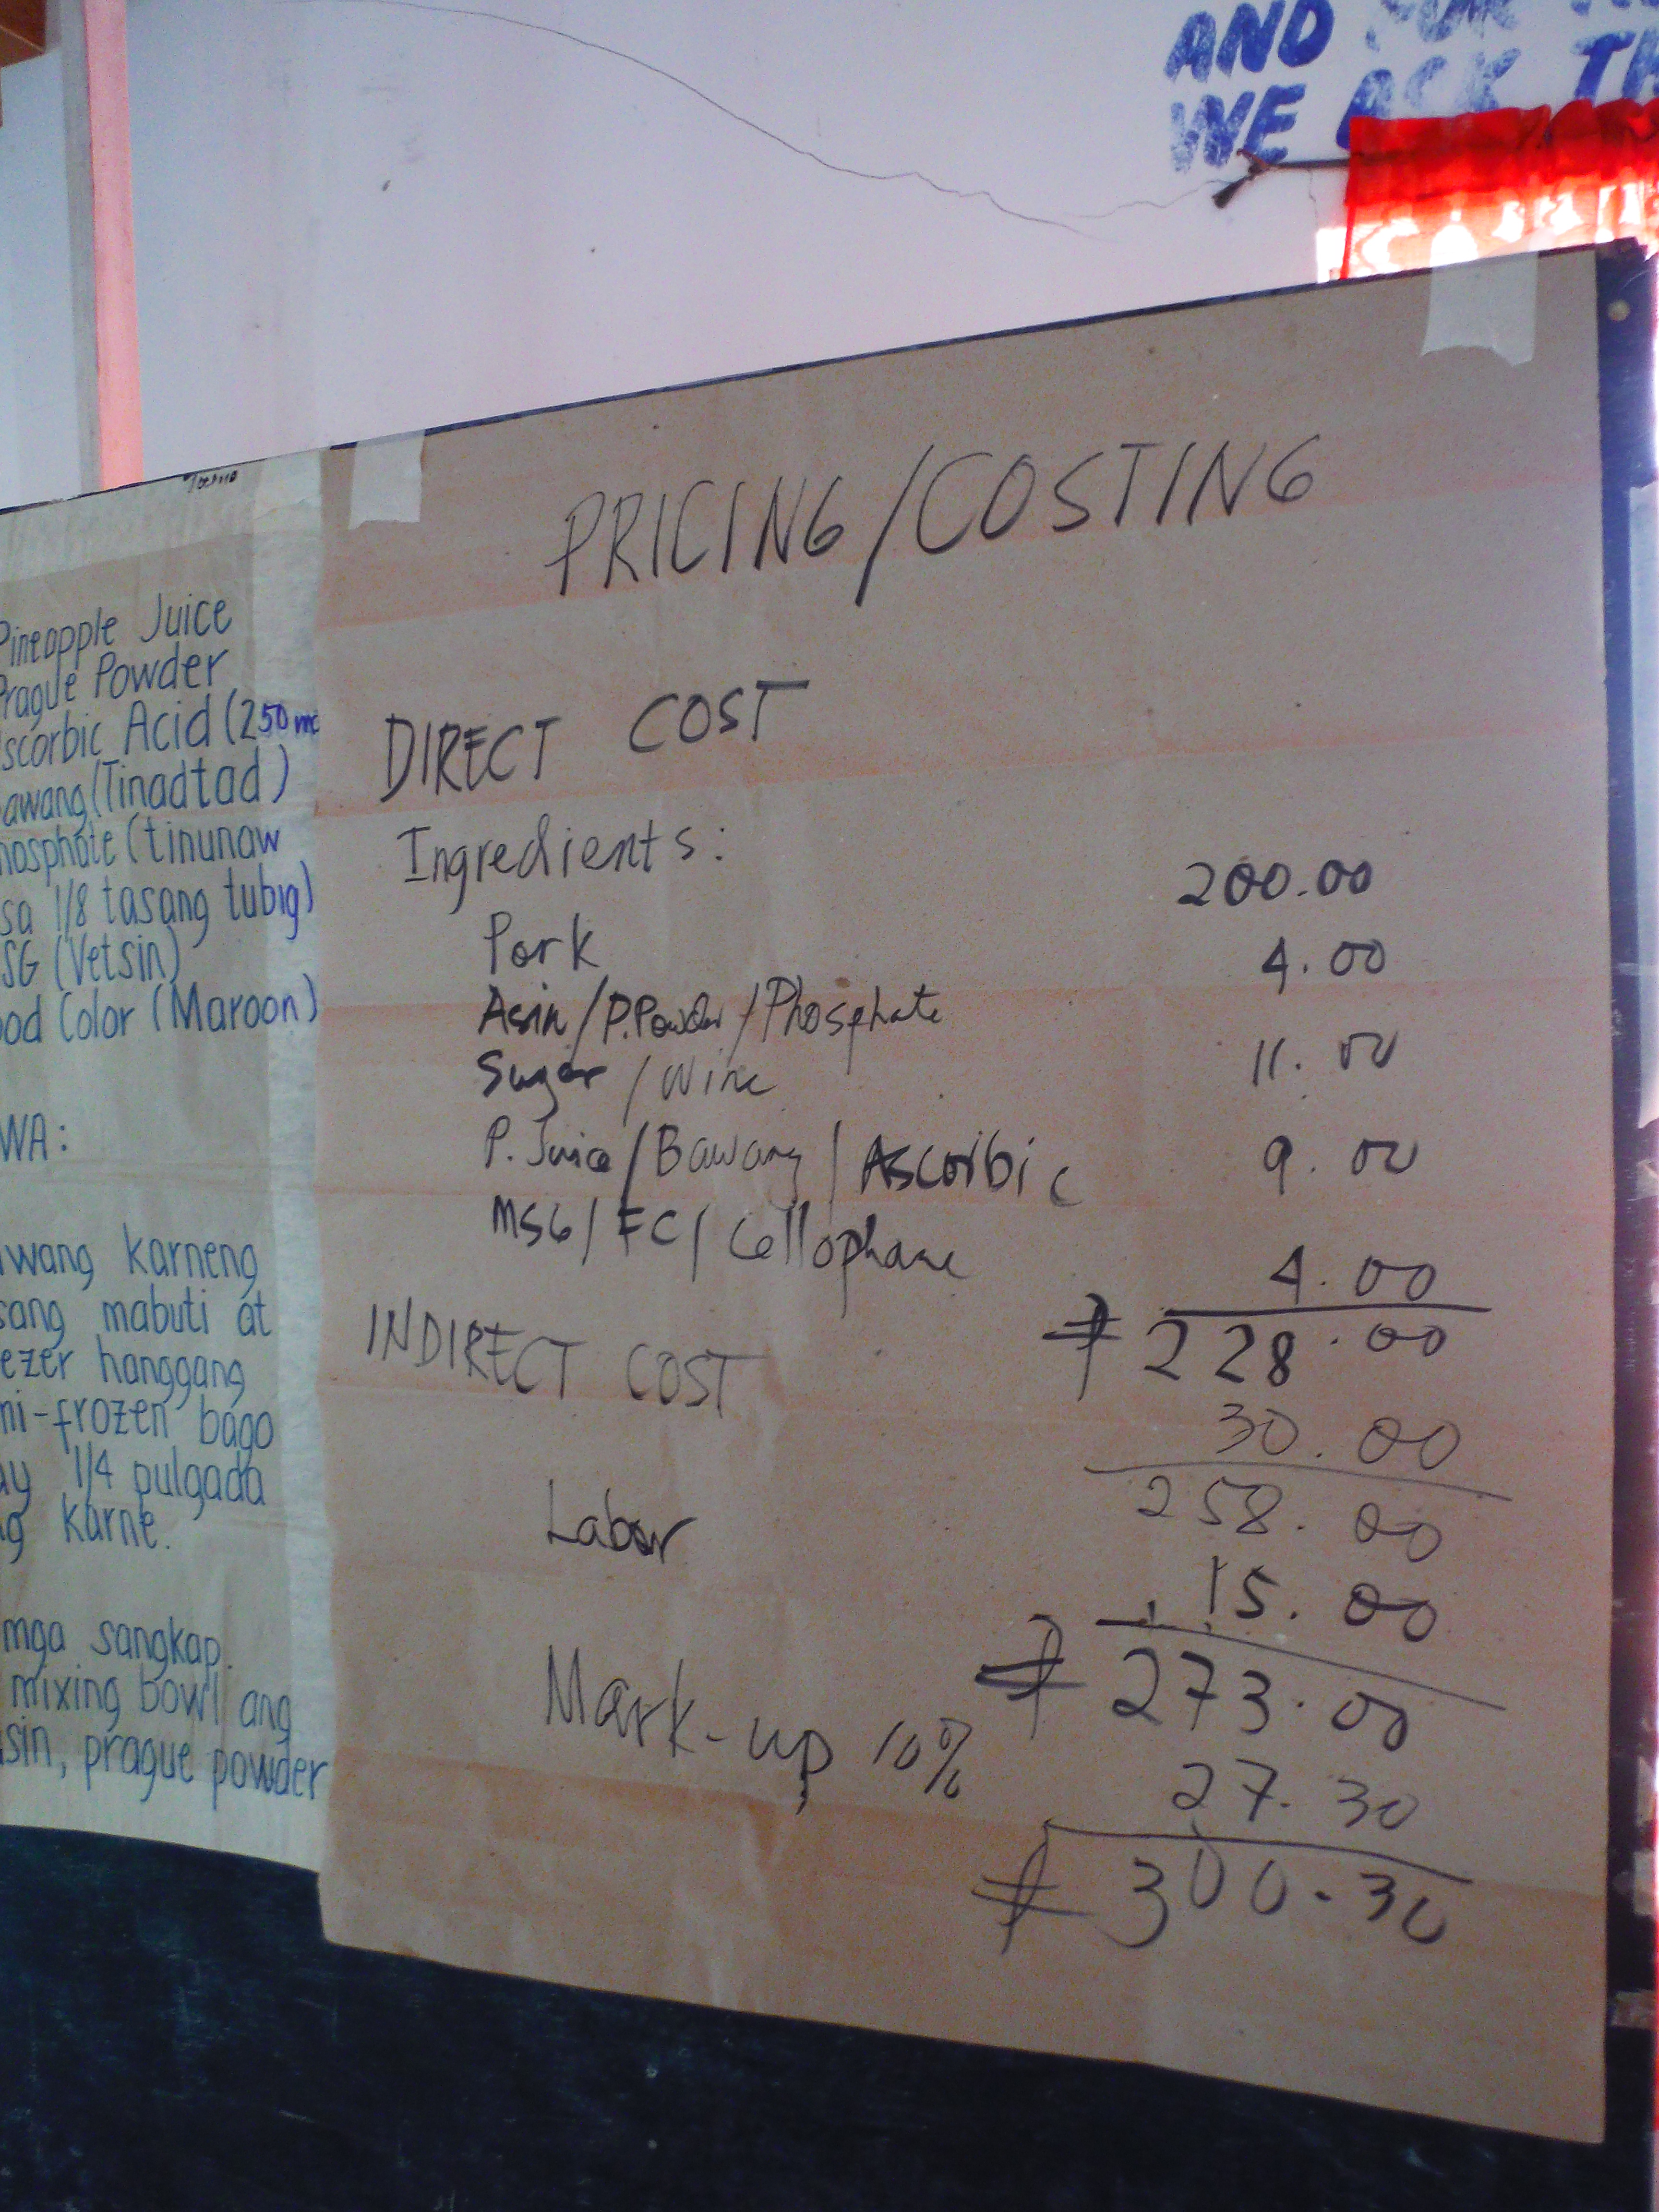 AND
WE ASK TH
Tocino
Pineapple Juice
Prague Powder
scorbic Acid (250 mc
awang (Tinadtad)
hosphate (tinunaw
sa 1/8 tasang tubig)
SG (Vetsin)
ood Color (Maroon)
WA:
wang karneng
sang mabuti at
ezer hanggang
mi-frozen bago
ay 1/4 pulgada
g karne.
mga sangkap.
mixing bowl ang
sin, prague powder
PRICING/COSTING
DIRECT COST
Ingredients:
Pork 200.00
Asin/P.Powder/Phosphate 4.00
Sugar/Wine 11.00
P. Juice/Bawang/Ascorbic 9.00
MSG/FC/Cellophane 4.00
₱228.00
INDIRECT COST
30.00
258.00
Labor 15.00
₱273.00
Mark-up 10% 27.30
₱300.30